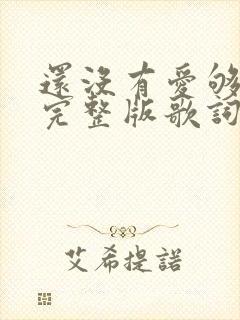 還沒有愛够
完整版歌詞
艾希提諾